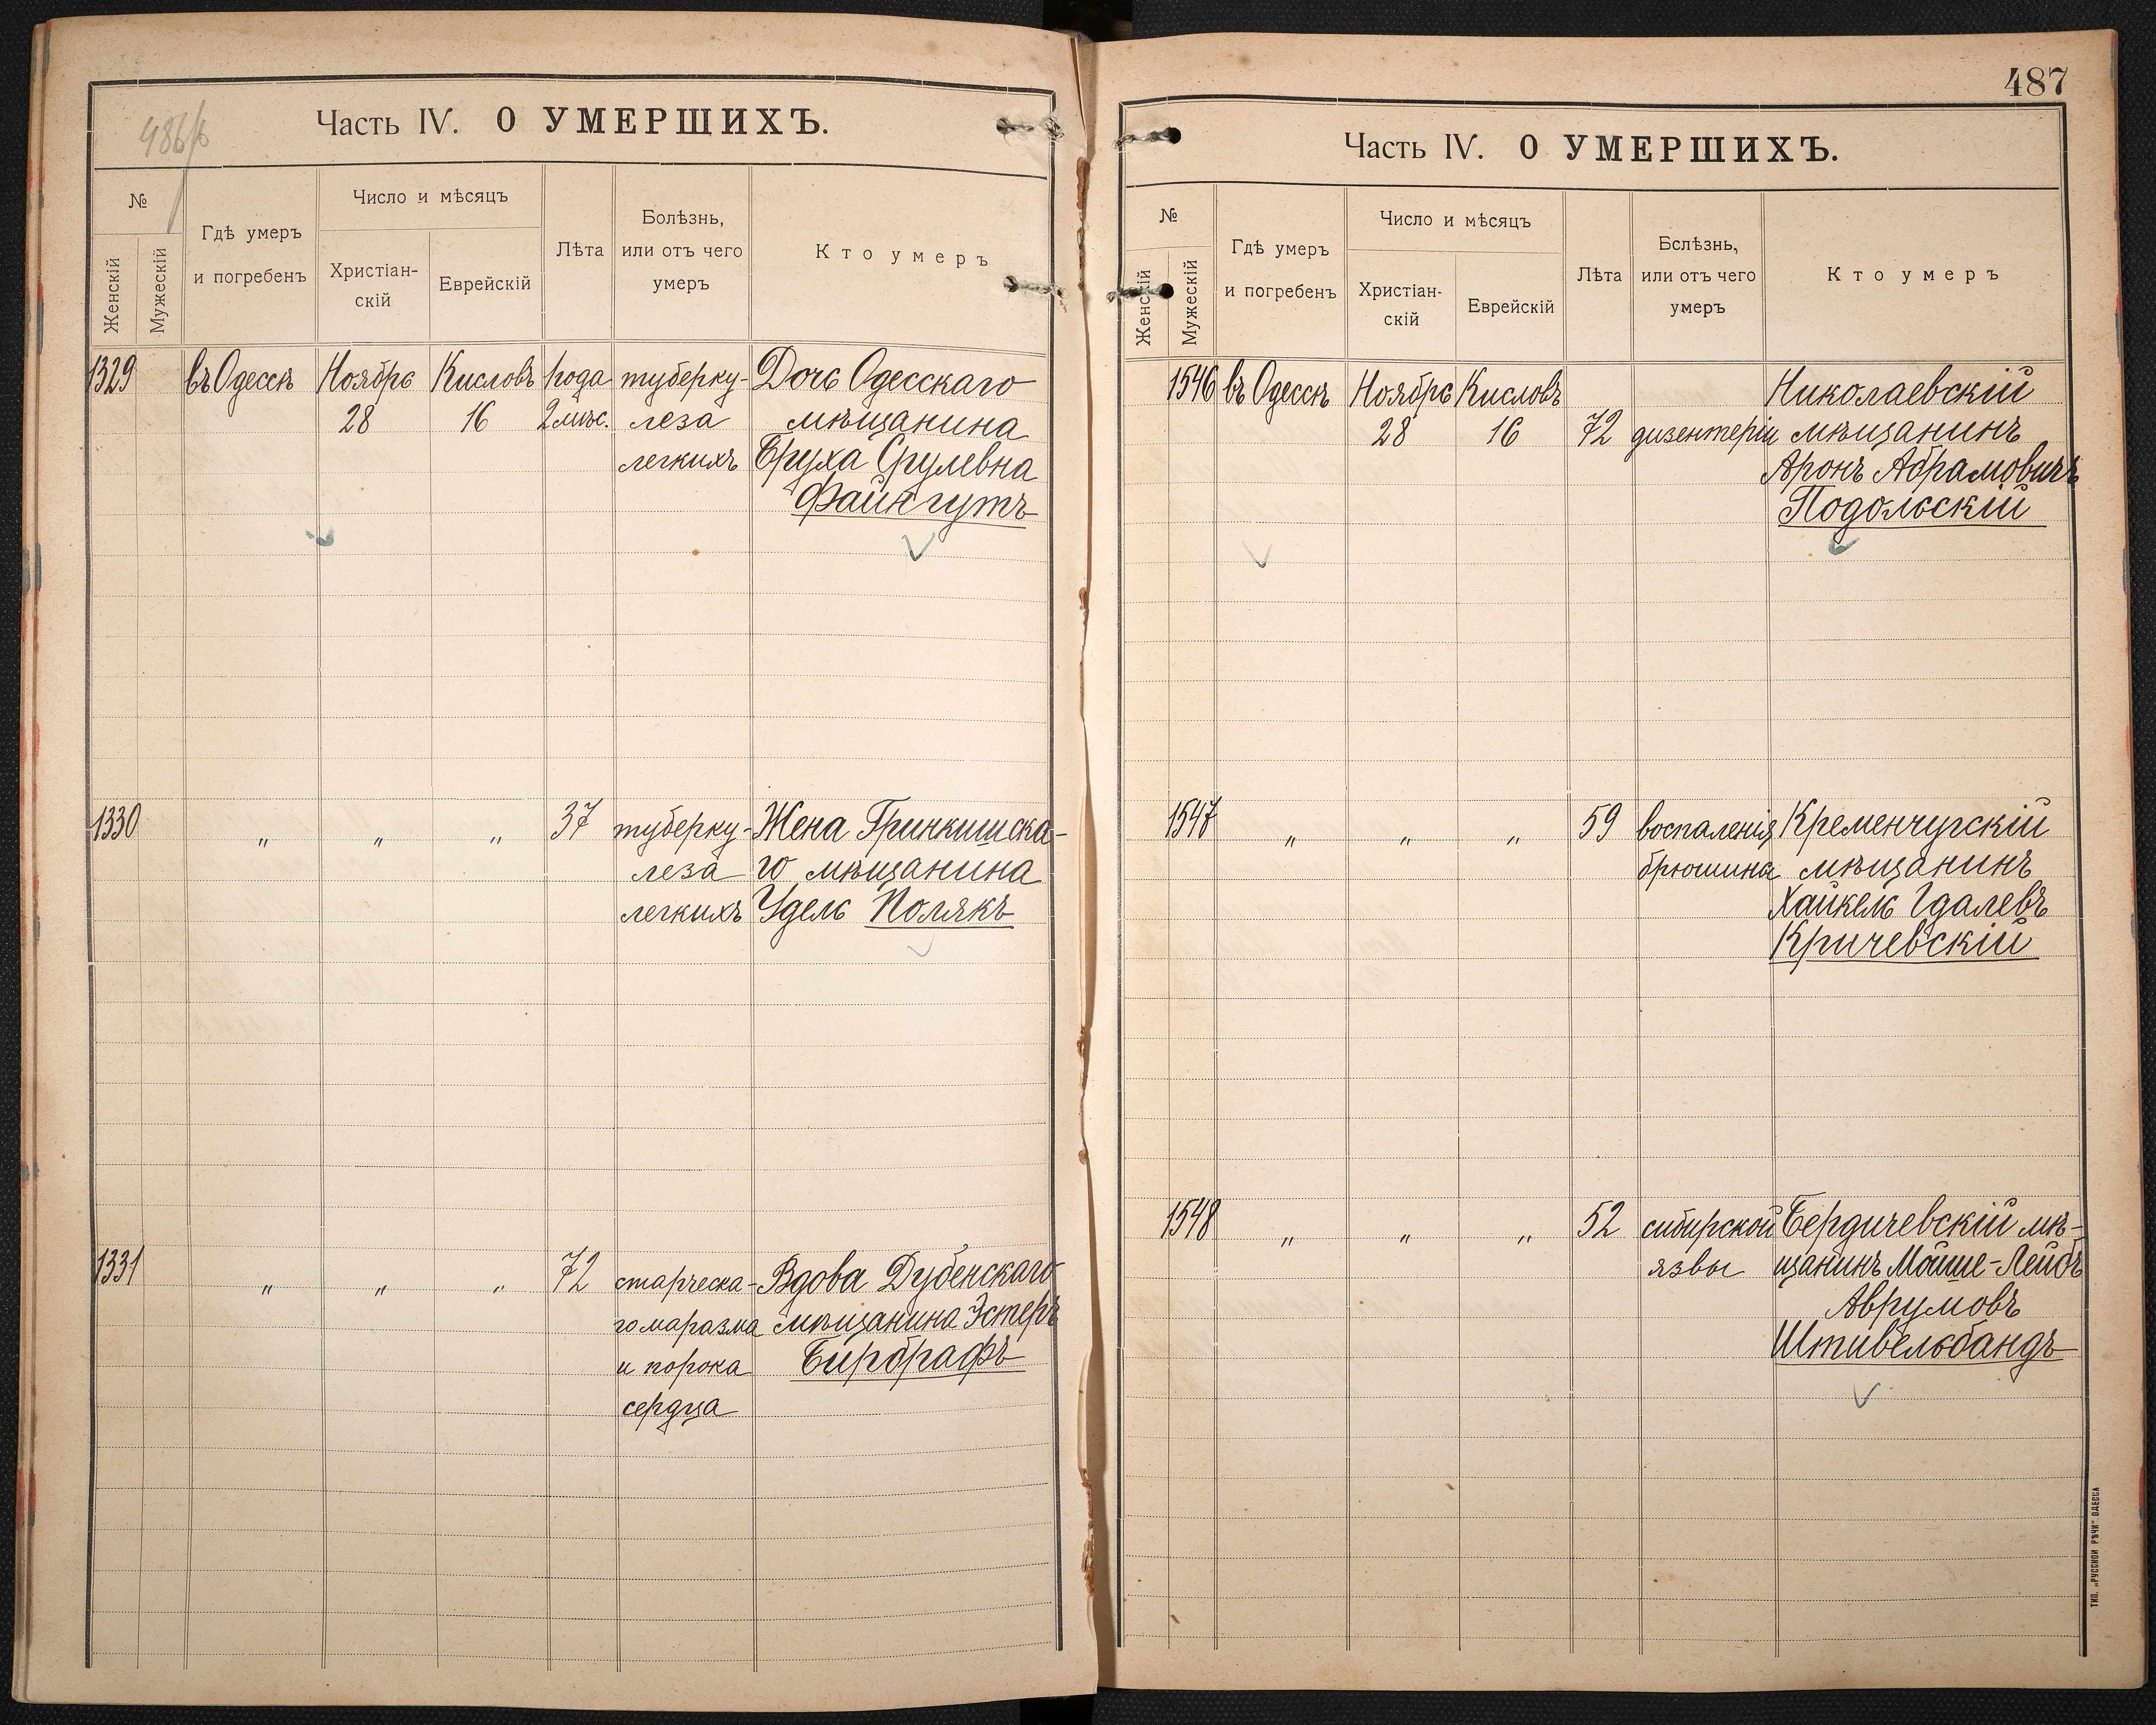 486/б
Часть IV. О УМЕРШИХЪ.
№
Женскій
Мужескій
Гдѣ умеръ
и погребенъ
Число и мѣсяцъ
Христіан-
скій
Еврейскій
Лѣта
Болѣзнь,
или отъ чего
умеръ
Кто умеръ
1329 въ Одессѣ Ноябрь Кисловъ года туберку- Дочь Одесскаго
28 16 2 мѣс. леза мѣщанина
легкихъ Бруха Срулевна
Файнгутъ
1330 " " " 37 туберку- Жена Гринкишска-
леза го мѣщанина
легкихъ Удель Полякъ
1331 " " " 72 старческа- Вдова Дубенскаго
го маразма мѣщанина Эстеръ
и порока Бирбрафъ
сердца
487
Часть IV. О УМЕРШИХЪ.
№
Женскій
Мужескій
Гдѣ умеръ
и погребенъ
Число и мѣсяцъ
Христіан-
скій
Еврейскій
Лѣта
Болѣзнь,
или отъ чего
умеръ
Кто умеръ
1546 въ Одессѣ Ноябрь Кисловъ Николаевскій
28 16 72 дизентеріи мѣщанинъ
Аронъ Абрамовичъ
Подольскій
1547 " " " 59 воспаленія Кременчугскій
брюшина мѣщанинъ
Хайкель Гдалевъ
Кричевскій
1548 " " " 52 сибирской Бердичевскій мѣ-
язвы щанинъ Мойше-Лейбъ
Аврумовъ
Штивельбандъ
ТИП. „РУССКОЙ РѢЧИ" ОДЕССА